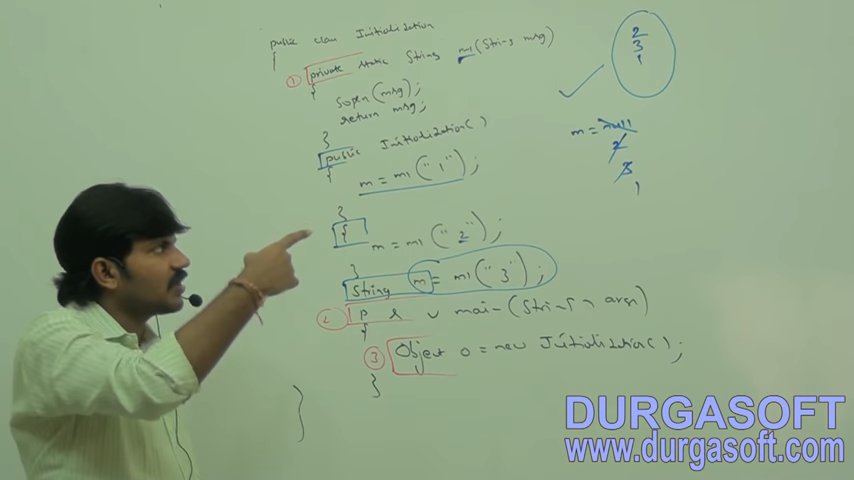 public class Initialization
{
① private static String m1(String msg)
{
Sopen(msg);
return msg;
}
public Initialization()
{
m = m1("1");
}
{
m = m1("2");
}
String m = m1("3");
② P s v main(String[] args)
{
③ Object o = new Initialization();
}
}
2
3
1
m = null
2
3
1
DURGASOFT
www.durgasoft.com